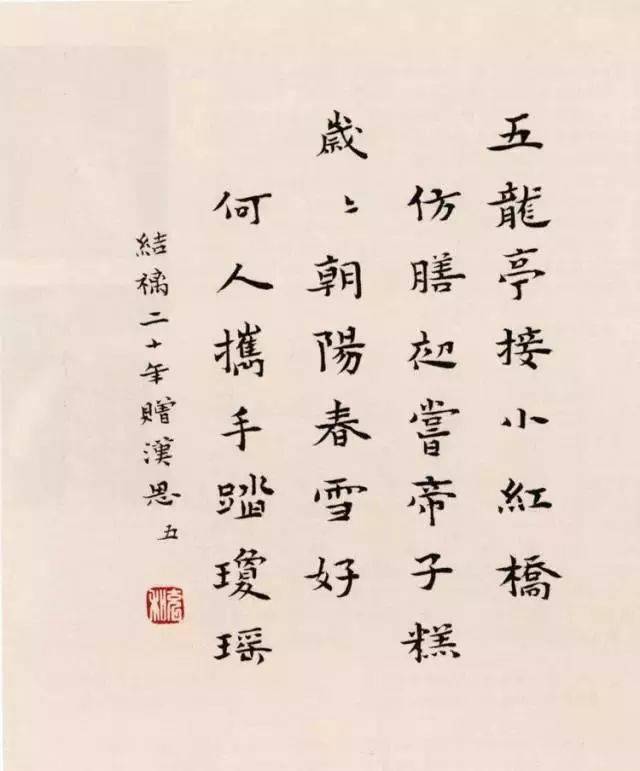 五龍亭接小紅橋
仿膳初嘗帝子糕
歲〻朝陽春雪好
何人攜手踏瓊瑶
結褵二十年贈漢思 五